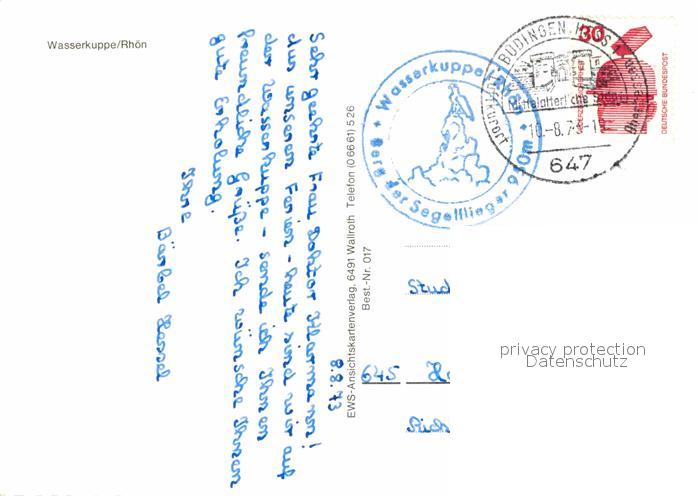 Wasserkuppe/Rhön
8.8.73
Sehr geehrte Frau Doktor
aus unseren Ferien - heute sind wir auf
der Wasserkuppe - sende ich Ihnen
freundliche Grüße. Ich wünsche Ihnen
gute Erholung.
Ihre
Bärbel
EWS-Ansichtskartenverlag, 6491 Wallroth Telefon (0 66 61) 5 26
Best.-Nr. 017
Wasserkuppe
Berg der Segelflieger 950m
BÜDINGEN, HESS 1
Mittelalterliche
10.-8.73
647
30
DEUTSCHE BUNDESPOST
Stud
645 H
privacy protection
Datenschutz